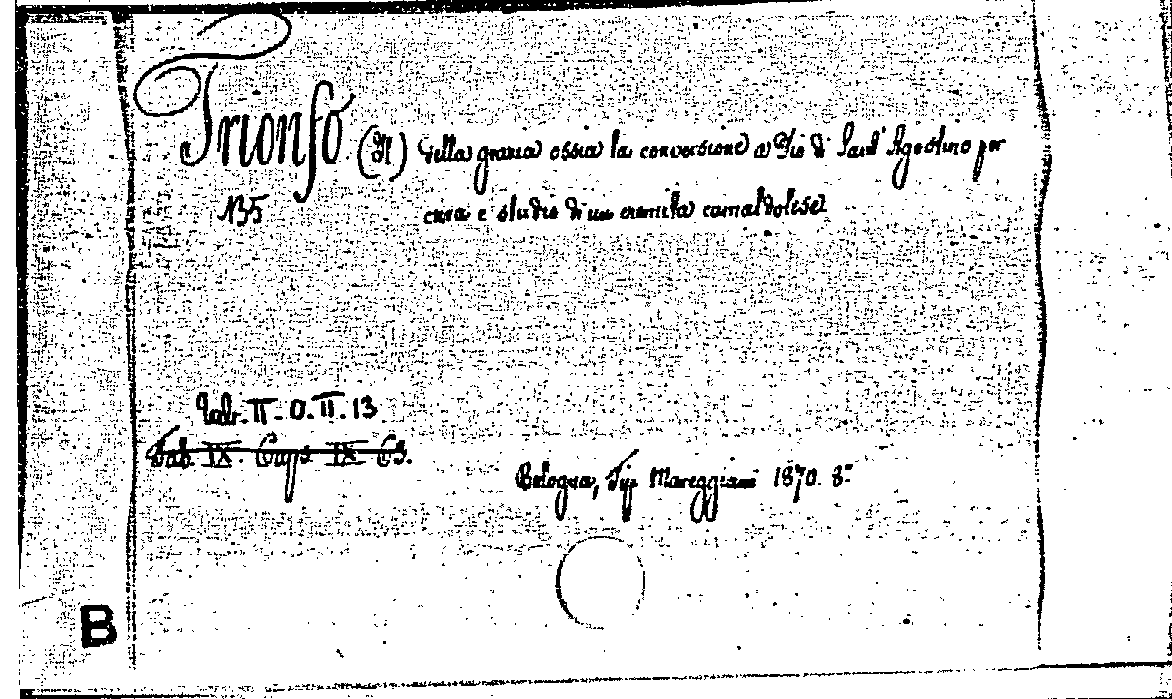 Trionfo (Il) della grazia ossia la conversione a Dio di Sant' Agostino per
cura e studio di un eremita camaldolese
Tab. II. O. II. 13
Tab. IX. Caps IX C3.
Bologna, Tip Mareggiani 1870. 8°
B